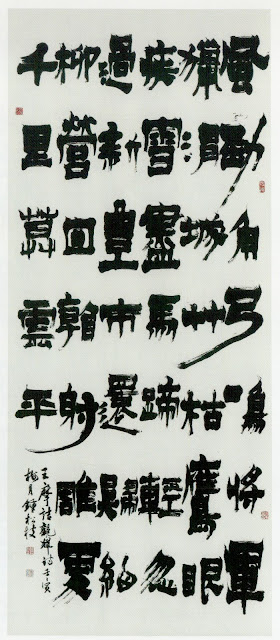 風勁角弓鳴將軍
獵渭城艸枯鷹眼
疾雪盡馬蹄輕忽
過新豐市還歸細
柳營回看射雕處
千里莫雲平
王摩詰觀獵詩壬寅
月鍾松